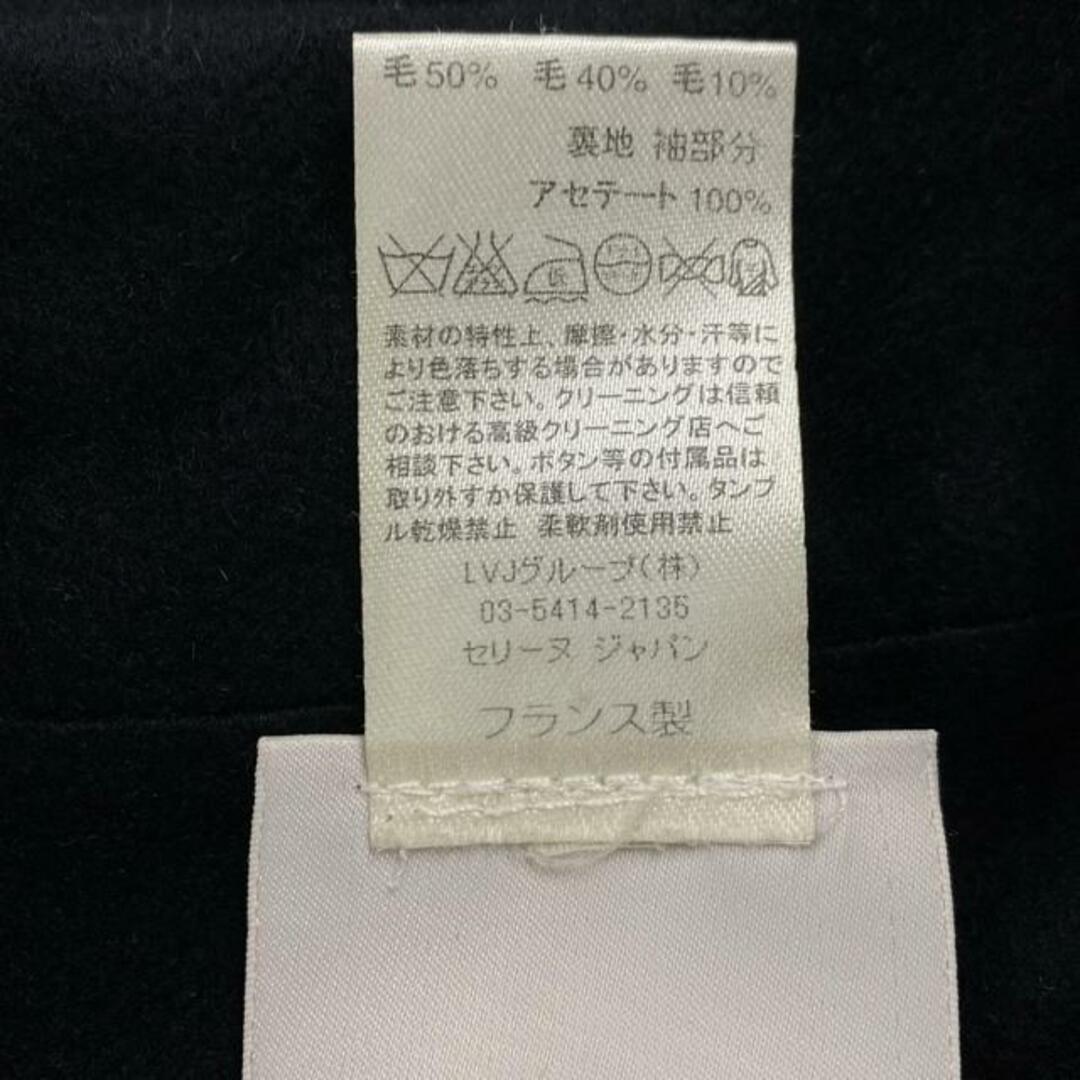 毛50% 毛40% 毛10%
裏地 袖部分
アセテート 100%
素材の特性上、摩擦・水分・汗等に
より色落ちする場合がありますので
ご注意下さい。クリーニングは信頼
のおける高級クリーニング店へご
相談下さい。ボタン等の付属品は
取り外すか保護して下さい。タンブ
ル乾燥禁止 柔軟剤使用禁止
LVJグループ(株)
03-5414-2135
セリーヌ ジャパン
フランス製